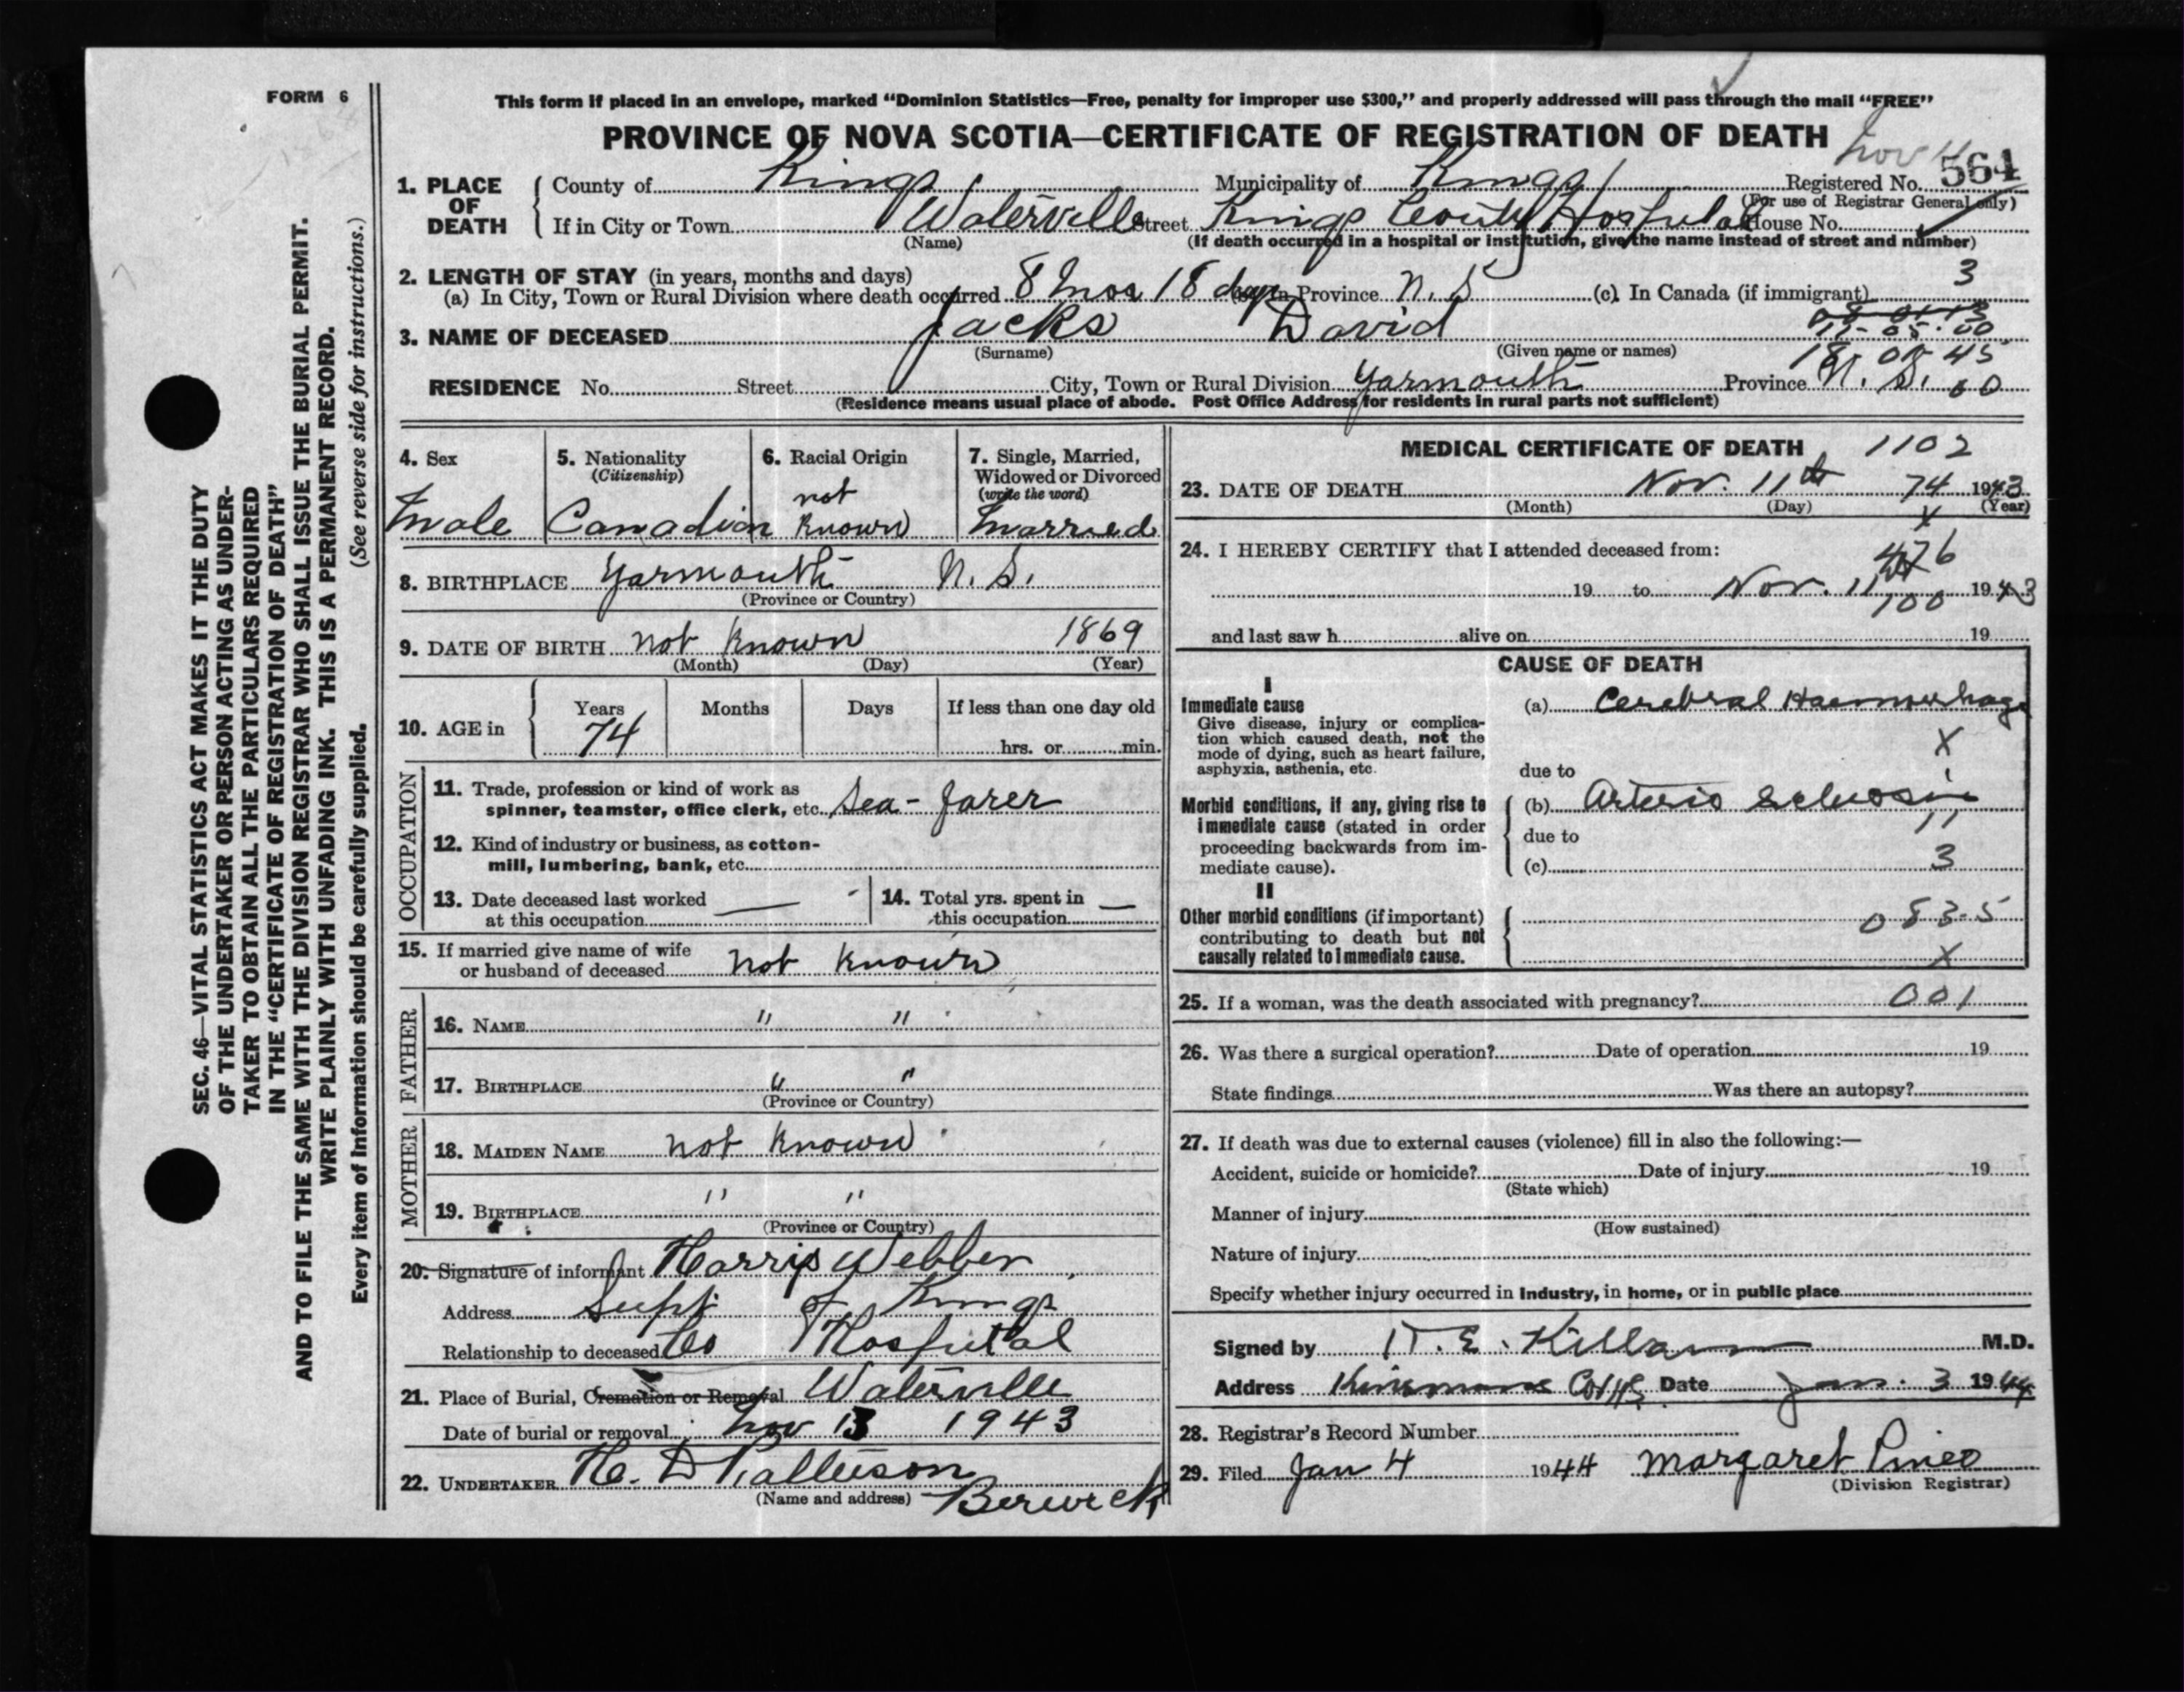 FORM 6
This form if placed in an envelope, marked “Dominion Statistics—Free, penalty for improper use $300,” and properly addressed will pass through the mail “FREE”
PROVINCE OF NOVA SCOTIA—CERTIFICATE OF REGISTRATION OF DEATH
Nov 11
1. PLACE OF DEATH
County of Kings Municipality of Kings Registered No. 564
(For use of Registrar General only)
If in City or Town Waterville Street Kings County Hospital House No.
(Name) (If death occurred in a hospital or institution, give the name instead of street and number)
2. LENGTH OF STAY (in years, months and days)
(a) In City, Town or Rural Division where death occurred 8 mos 18 days In Province N. S (c) In Canada (if immigrant) 3
3. NAME OF DECEASED Jacks David
(Surname) (Given name or names)
18. 01 45
RESIDENCE No. Street City, Town or Rural Division Yarmouth Province N. S. 60
(Residence means usual place of abode. Post Office Address for residents in rural parts not sufficient)
4. Sex
male
5. Nationality
(Citizenship)
Canadian
6. Racial Origin
not
known
7. Single, Married,
Widowed or Divorced
(write the word)
married
8. BIRTHPLACE Yarmouth N. S.
(Province or Country)
9. DATE OF BIRTH not known 1869
(Month) (Day) (Year)
10. AGE in Years Months Days If less than one day old
74 hrs. or min.
OCCUPATION
11. Trade, profession or kind of work as
spinner, teamster, office clerk, etc. Sea-farer
12. Kind of industry or business, as cotton-
mill, lumbering, bank, etc.
13. Date deceased last worked —
at this occupation
14. Total yrs. spent in —
this occupation
15. If married give name of wife
or husband of deceased not known
FATHER
16. NAME " "
17. BIRTHPLACE " "
(Province or Country)
MOTHER
18. MAIDEN NAME not known
19. BIRTHPLACE " "
(Province or Country)
20. Signature of informant Harris Webber
Address Supt of Kings
Relationship to deceased Co Hospital
21. Place of Burial, Cremation or Removal Waterville
Date of burial or removal Nov 13 1943
22. UNDERTAKER
(Name and address) Berwick
MEDICAL CERTIFICATE OF DEATH 1102
23. DATE OF DEATH Nov. 11th 74 1943
(Month) (Day) (Year)
X
24. I HEREBY CERTIFY that I attended deceased from:
476
19 to Nov. 11th 1943
100
and last saw h alive on 19
CAUSE OF DEATH
I
Immediate cause
Give disease, injury or complica-
tion which caused death, not the
mode of dying, such as heart failure,
asphyxia, asthenia, etc.
(a) Cerebral Haemorrhage
X
due to
Morbid conditions, if any, giving rise to
immediate cause (stated in order
proceeding backwards from im-
mediate cause).
(b) Arterio sclerosis
11
due to
(c) 3
II
Other morbid conditions (if important)
contributing to death but not
causally related to immediate cause.
083-5
X
25. If a woman, was the death associated with pregnancy? 001
26. Was there a surgical operation? Date of operation 19
State findings Was there an autopsy?
27. If death was due to external causes (violence) fill in also the following:—
Accident, suicide or homicide? Date of injury 19
(State which)
Manner of injury
(How sustained)
Nature of injury
Specify whether injury occurred in industry, in home, or in public place
Signed by E. Killam M.D.
Address Kinsmans Date Jan. 3 1944
28. Registrar's Record Number
29. Filed Jan 4 1944 Margaret Pineo
(Division Registrar)
SEC. 46—VITAL STATISTICS ACT MAKES IT THE DUTY
OF THE UNDERTAKER OR PERSON ACTING AS UNDER-
TAKER TO OBTAIN ALL THE PARTICULARS REQUIRED
IN THE “CERTIFICATE OF REGISTRATION OF DEATH”
AND TO FILE THE SAME WITH THE DIVISION REGISTRAR WHO SHALL ISSUE THE BURIAL PERMIT.
WRITE PLAINLY WITH UNFADING INK. THIS IS A PERMANENT RECORD.
Every item of Information should be carefully supplied. (See reverse side for instructions.)